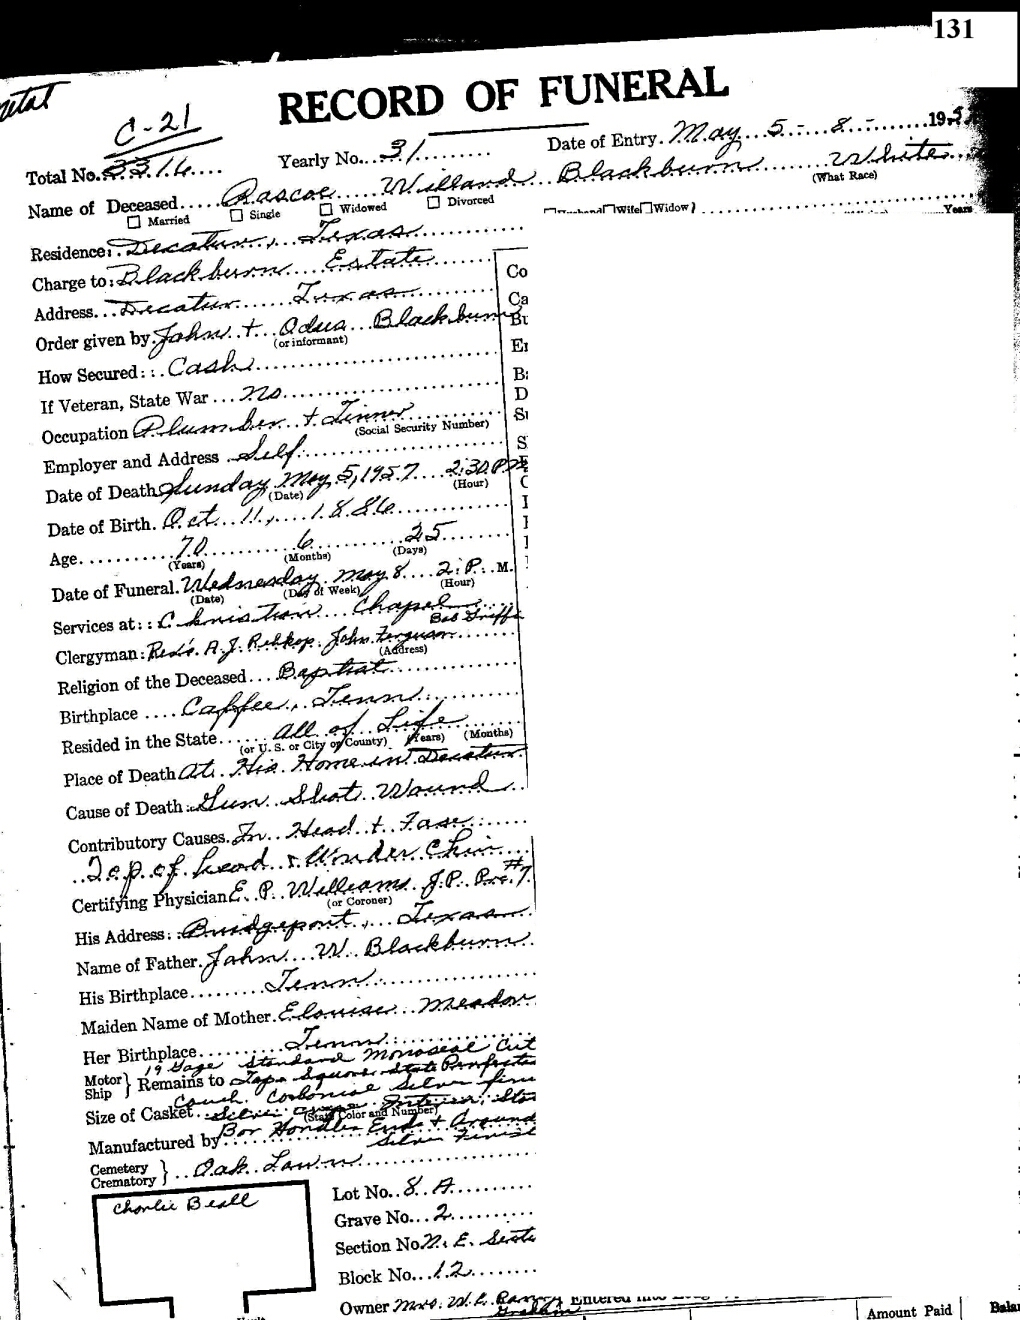 131
RECORD OF FUNERAL
C-21
Total No. 3316 Yearly No. 31 Date of Entry. May 5-8- 195
Name of Deceased Rascoe Willard Blackburn White
(What Race)
☐ Married ☐ Single ☐ Widowed ☐ Divorced ☐Husband☐Wife☐Widow} Years
Residence: Decatur, Texas
Charge to: Blackburn Estate
Address Decatur Texas
Order given by John + Odus Blackburn
(or informant)
How Secured: Cash
If Veteran, State War No
Occupation Plumber + Tinner
(Social Security Number)
Employer and Address Self
Date of Death Sunday May 5, 1957 2:30 P.M
(Date) (Hour)
Date of Birth. Oct 11, 1886
Age 70 6 25
(Years) (Months) (Days)
Date of Funeral. Wednesday May 8 2: P. M.
(Date) (Day of Week) (Hour)
Services at: Christian Chapel
Bob
Clergyman: Red's. A.J. John Ferguson
(Address)
Religion of the Deceased Baptist
Birthplace Coffee, Tenn
Resided in the State All of Life
(or U. S. or City or County) (Years) (Months)
Place of Death At His Home in Decatur
Cause of Death: Gun Shot Wound
Contributory Causes. In Head + Fase
Top of head + Wonder Chin
Certifying Physician E. P. Williams J.P. Prc. #7
(or Coroner)
His Address: Bridgeport, Texas
Name of Father. John W. Blackburn
His Birthplace Tenn
Maiden Name of Mother. Elouise Meadow
Her Birthplace Tenn
19 Gage Standard Monoseal Cut
Motor Ship } Remains to Square State
Couch Colonial Silver
Size of Casket Silver Interior,
(State Color and Number)
Manufactured by Bor Handles Ends + Around
Silver Finish
Cemetery Crematory } Oak Lawn
Charlie Beall
Lot No. 8 A
Grave No. 2
Section No. N. E.
Block No. 12
Owner Mrs. W.E. Entered into
Graham
Amount Paid